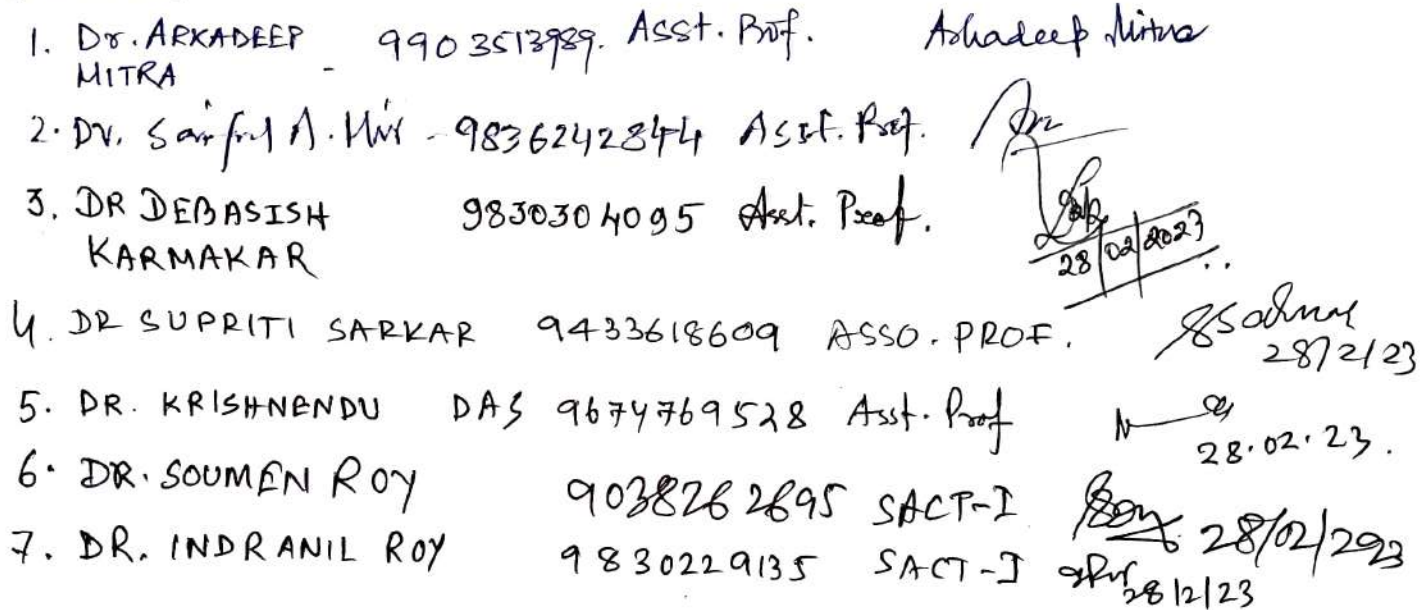 1. Dr. ARKADEEP 9903513989. Asst. Prof. Arkadeep Mitra
MITRA -
2. Dr. Saiful A. Mir - 9836242844 Asst. Prof.
3. DR DEBASISH 9830304095 Asst. Prof.
KARMAKAR
28/02/2023
4. DR SUPRITI SARKAR 9433618609 ASSO. PROF. SSarkar
28/2/23
5. DR. KRISHNENDU DAS 9674769528 Asst. Prof
28.02.23.
6. DR. SOUMEN ROY 9038262695 SACT-I Roy 28/02/2023
7. DR. INDRANIL ROY 9830229135 SACT-I
28/2/23